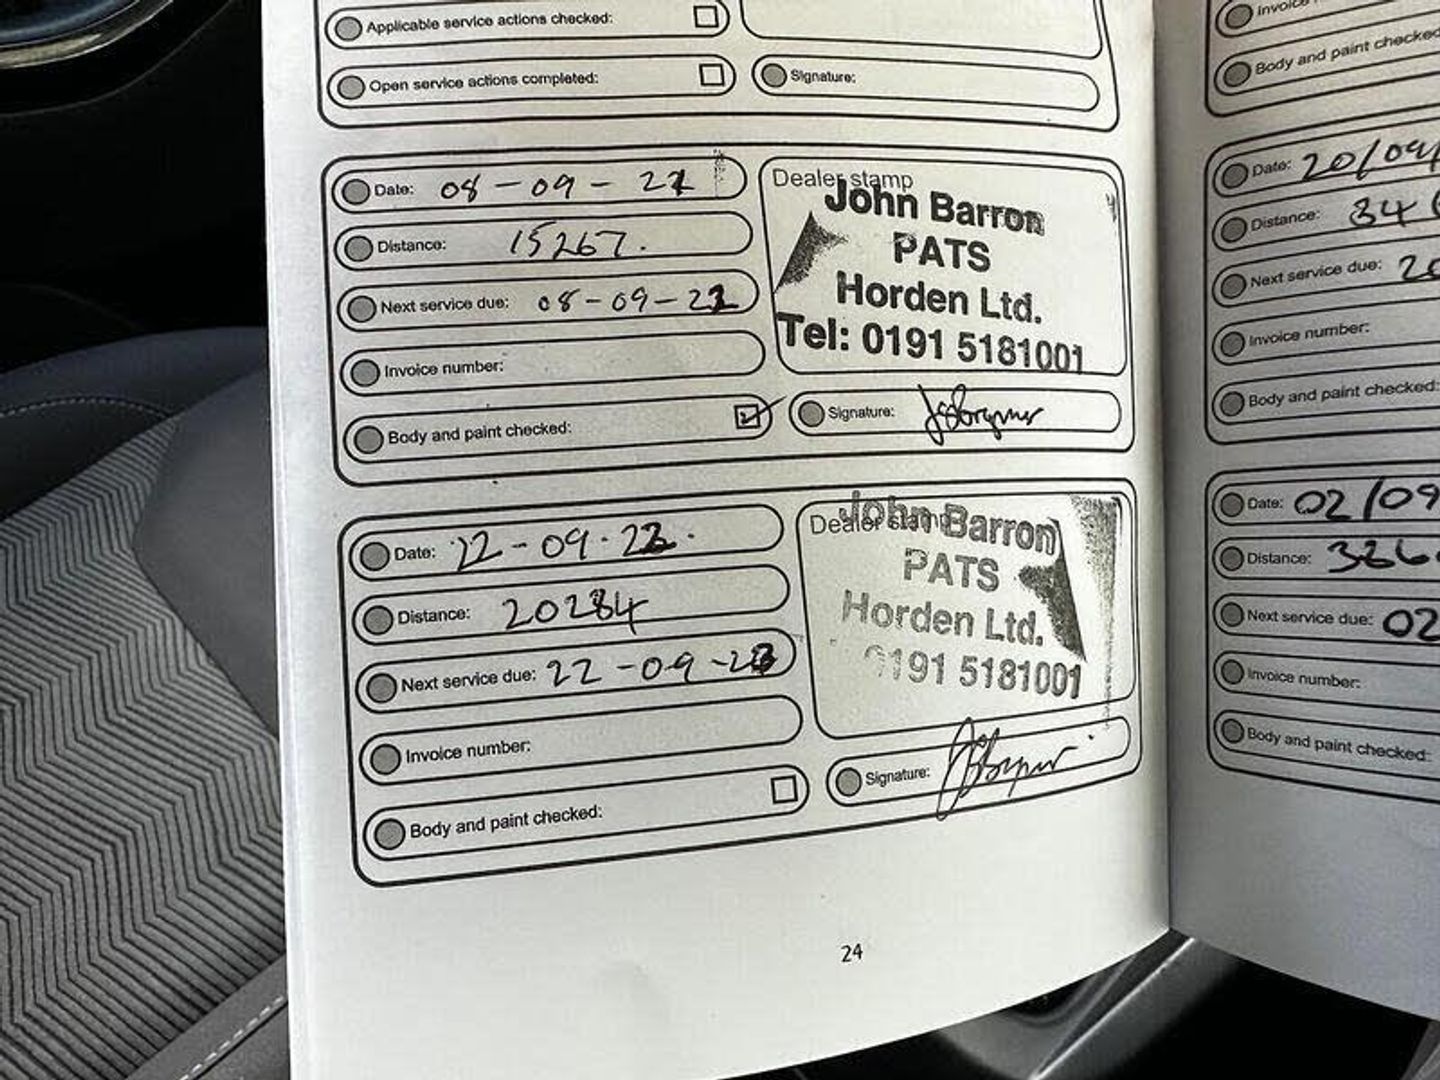 Applicable service actions checked:
Open service actions completed:
Signature:
Date: 08-09-21
Distance: 15267.
Next service due: 08-09-22
Invoice number:
Body and paint checked:
Dealer stamp
John Barron
PATS
Horden Ltd.
Tel: 0191 5181001
Signature:
Date: 22-09-22.
Distance: 20284
Next service due: 22-09-23
Invoice number:
Body and paint checked:
Dealer stamp
John Barron
PATS
Horden Ltd.
0191 5181001
Signature:
24
Invoice
Body and paint checked
Date: 20/09/
Distance: 34
Next service due: 20
Invoice number:
Body and paint checked:
Date: 02/09
Distance: 386
Next service due: 02
Invoice number:
Body and paint checked: